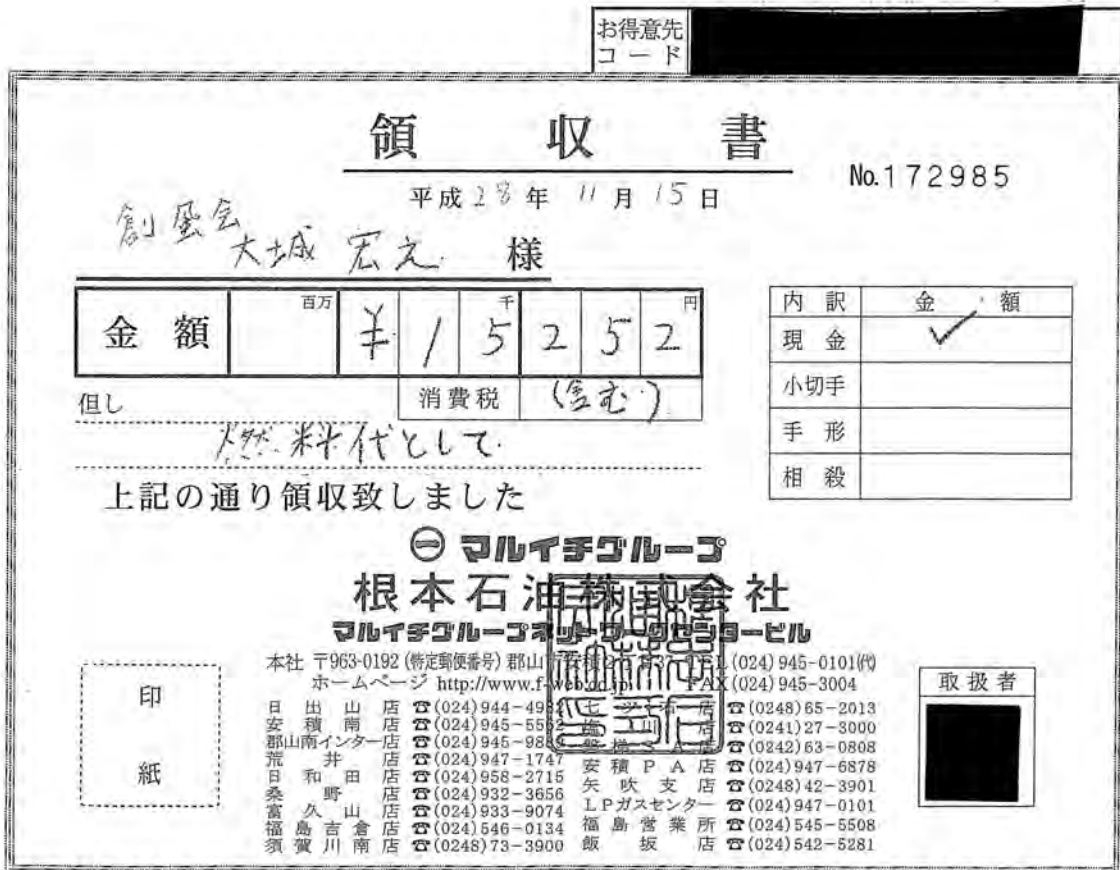 お得意先
コード
領収書
No.172985
平成28年11月15日
創風会
大城宏之 様
金額 百万 ¥ 1 5 千 2 5 2 円
消費税 (含む)
但し
燃料代として
上記の通り領収致しました
内訳 金額
現金 ✓
小切手
手形
相殺
㊀ マルイチグループ
根本石油株式会社
マルイチグループネットワークセンタービル
本社 〒963-0192 (特定郵便番号) 郡山市安積 TEL (024) 945-0101㈹
ホームページ http://www.f- FAX (024) 945-3004
日出山店 ☎(024)944-49
安積南店 ☎(024)945-55
郡山南インター店 ☎(024)945-98
荒井店 ☎(024)947-1747
日和田店 ☎(024)958-2715
桑野店 ☎(024)932-3656
富久山店 ☎(024)933-9074
福島吉倉店 ☎(024)546-0134
須賀川南店 ☎(0248)73-3900
店 ☎(0248)65-2013
店 ☎(0241)27-3000
☎(0242)63-0808
安積PA店 ☎(024)947-6878
矢吹支店 ☎(0248)42-3901
LPガスセンター ☎(024)947-0101
福島営業所 ☎(024)545-5508
飯坂店 ☎(024)542-5281
印
紙
取扱者